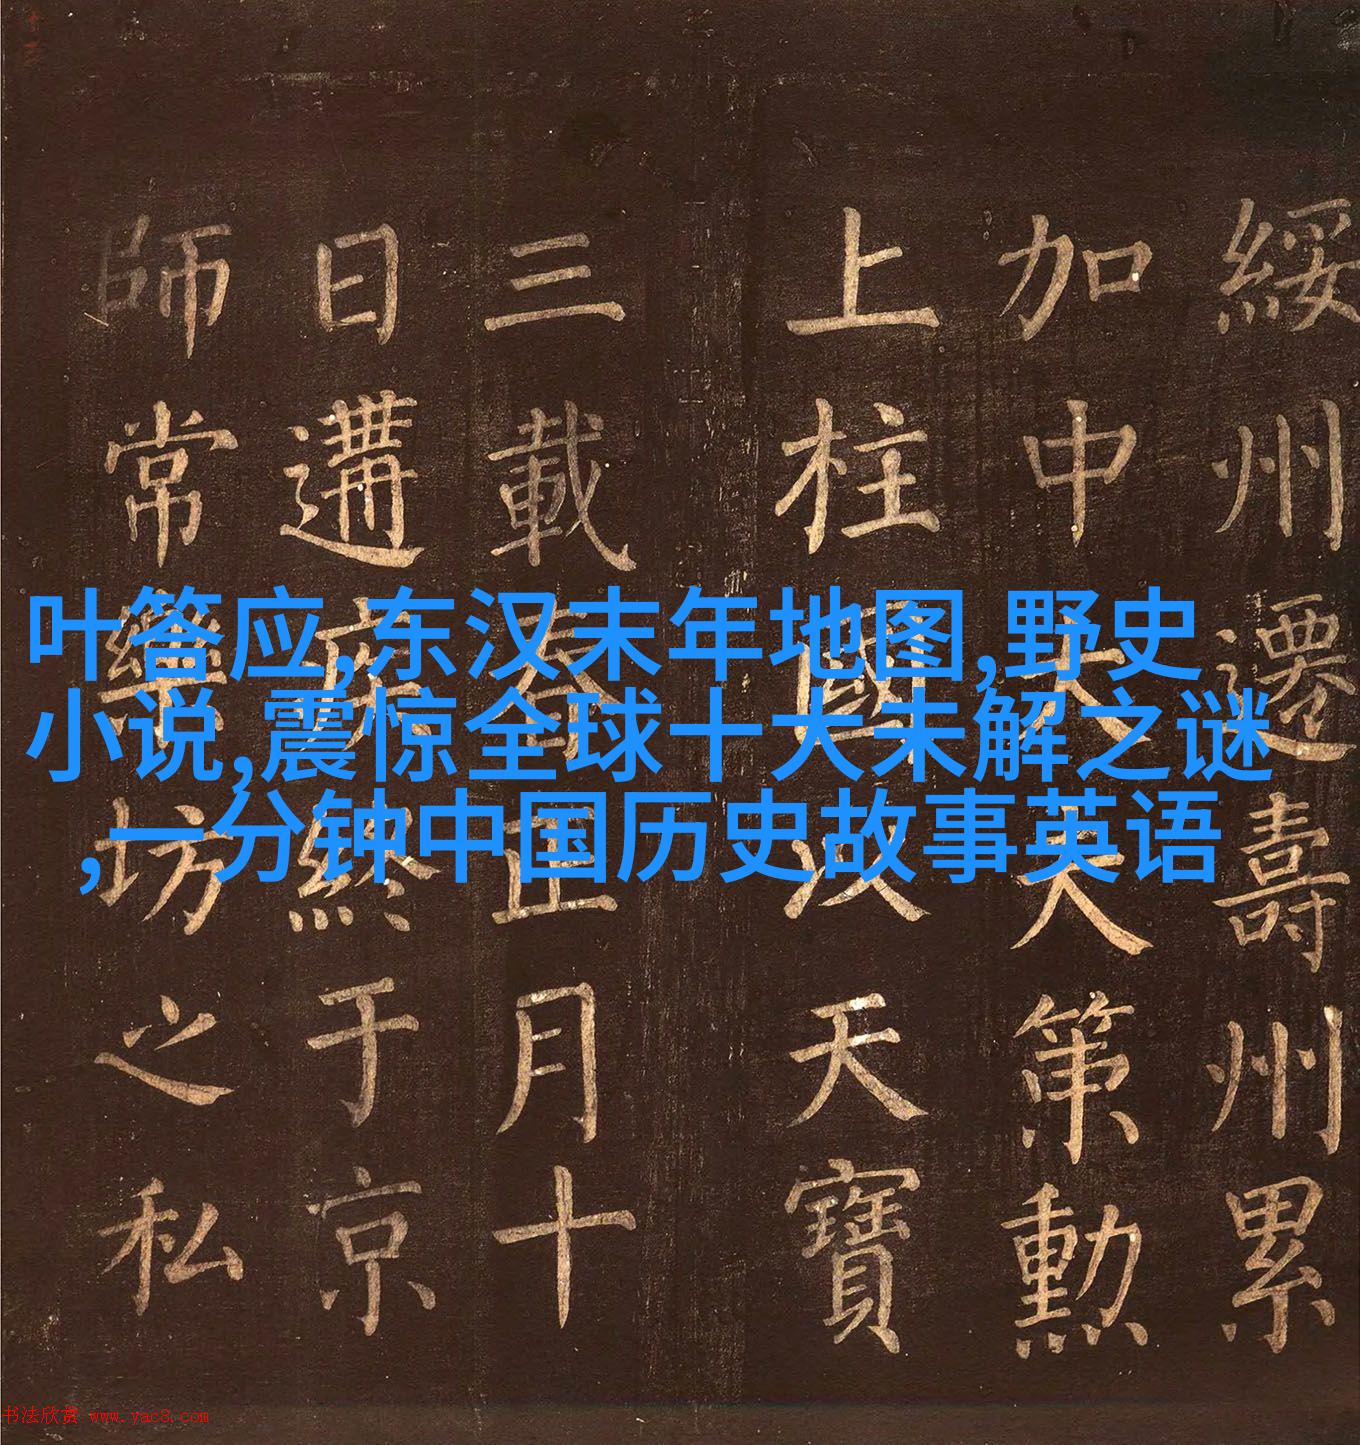 綏州遷壽州累
加中大夫策勳
上柱國以天寶
三載春正月十
日遘疾終于京
師常樂坊之私
叶答应,东汉末年地图,野史
小说,震惊全球十大未解之谜
,一分钟中国历史故事英语
书法欣赏 www.yac8.com